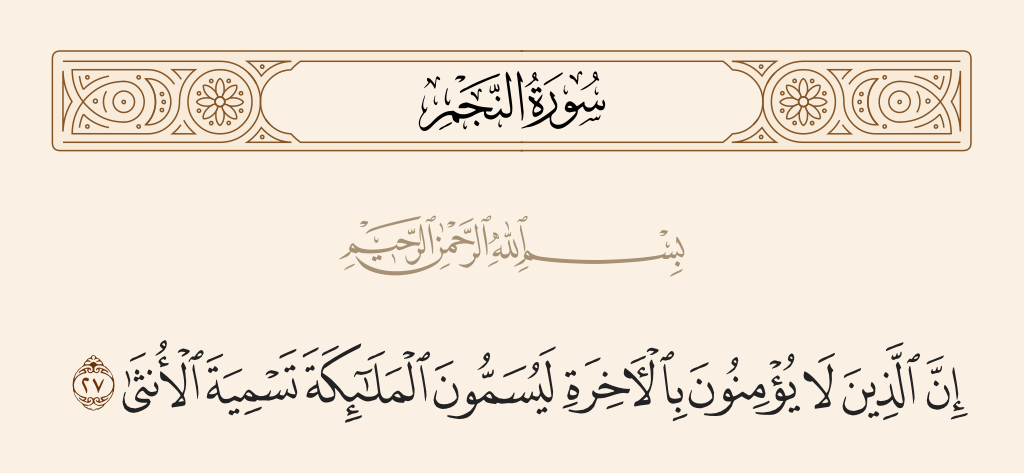 سُورَةُ النَّجْمِ
بِسْمِ ٱللَّهِ ٱلرَّحْمَٰنِ ٱلرَّحِيمِ
إِنَّ ٱلَّذِينَ لَا يُؤْمِنُونَ بِٱلْـَٔاخِرَةِ لَيُسَمُّونَ ٱلْمَلَـٰٓئِكَةَ تَسْمِيَةَ ٱلْأُنثَىٰ ٢٧